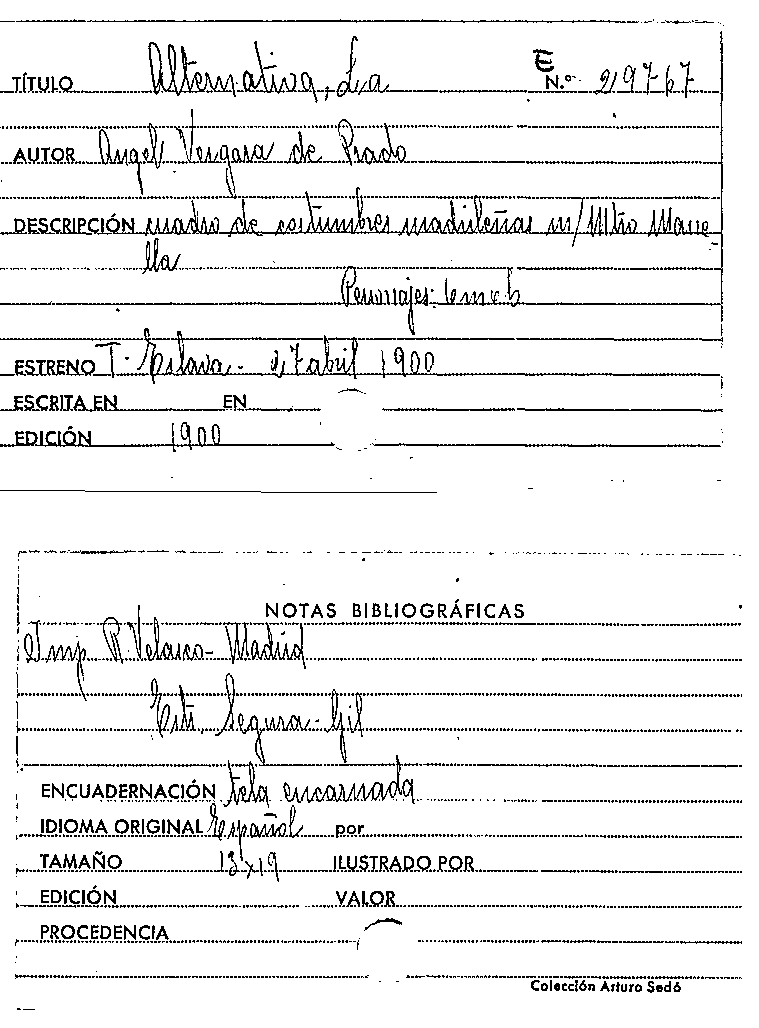 TÍTULO Alternativa, La E N.º 29767
AUTOR Angel Vergara de Prado
DESCRIPCIÓN cuadro de costumbres madrileñas m/ Mtro Mane-
lla
Personajes: 6m c 6
ESTRENO T. Eslava - 27 abril 1900
ESCRITA EN EN
EDICIÓN 1900
NOTAS BIBLIOGRÁFICAS
Imp R Velasco - Madrid
Segura - Gil
ENCUADERNACIÓN tela encarnada
IDIOMA ORIGINAL Español por
TAMAÑO 13x19 ILUSTRADO POR
EDICIÓN VALOR
PROCEDENCIA
Colección Arturo Sedó